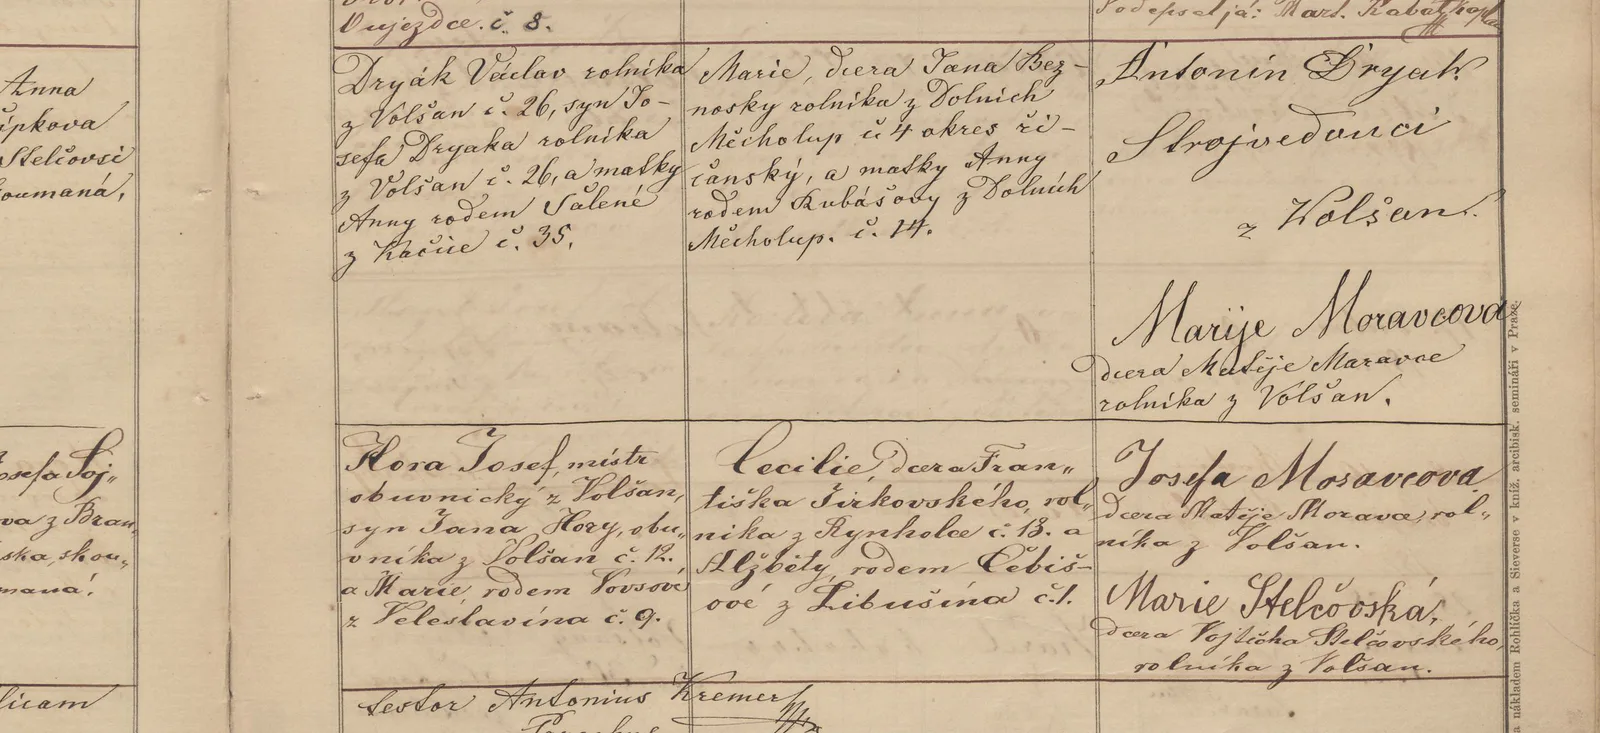 Oujezdce. č. 8.
Podepsal já: Mart.
Anna
Stelčovsi
Dryák Václav rolníka
z Volšan č. 26, syn Jo-
sefa Dryaka rolníka
z Volšan č. 26, a matky
Anny rodem Šálené
z Kačice č. 35.
Marie, dcera Jana Bez-
nosky rolníka z Dolních
Měcholup č 4 okres ři-
čanský, a matky Anny
rodem Kubášovy z Dolních
Měcholup. č. 14.
Antonín Dryák
Strojvedoucí
z Volšan.
Marije Moravcova
dcera Matěje Maravce
rolníka z Volšan.
va z Bran„
ska, skou„
maná!
Hora Josef, mistr
obuvnický z Volšan,
syn Jana Hory, obu„
vníka z Volšan č. 12.
a Marie, rodem Vovsové
z Veleslavína č. 9.
Cecilie, dcera Fran„
tiška Žirkovského, rol„
níka z Rynholce č. 13. a
Alžběty, rodem Čebiš-
ové z Libušína č. 1.
Josefa Moravcova
dcera Matěje Morava, rol„
níka z Volšan.
Marie Stelčovská,
dcera Vojtěcha Stelčovského,
rolníka z Volšan.
licam
testor Antonius Kremer
Parochus
nákladem Rohlíčka a Sieverse v kníž. arcibisk. semináři v Praze.